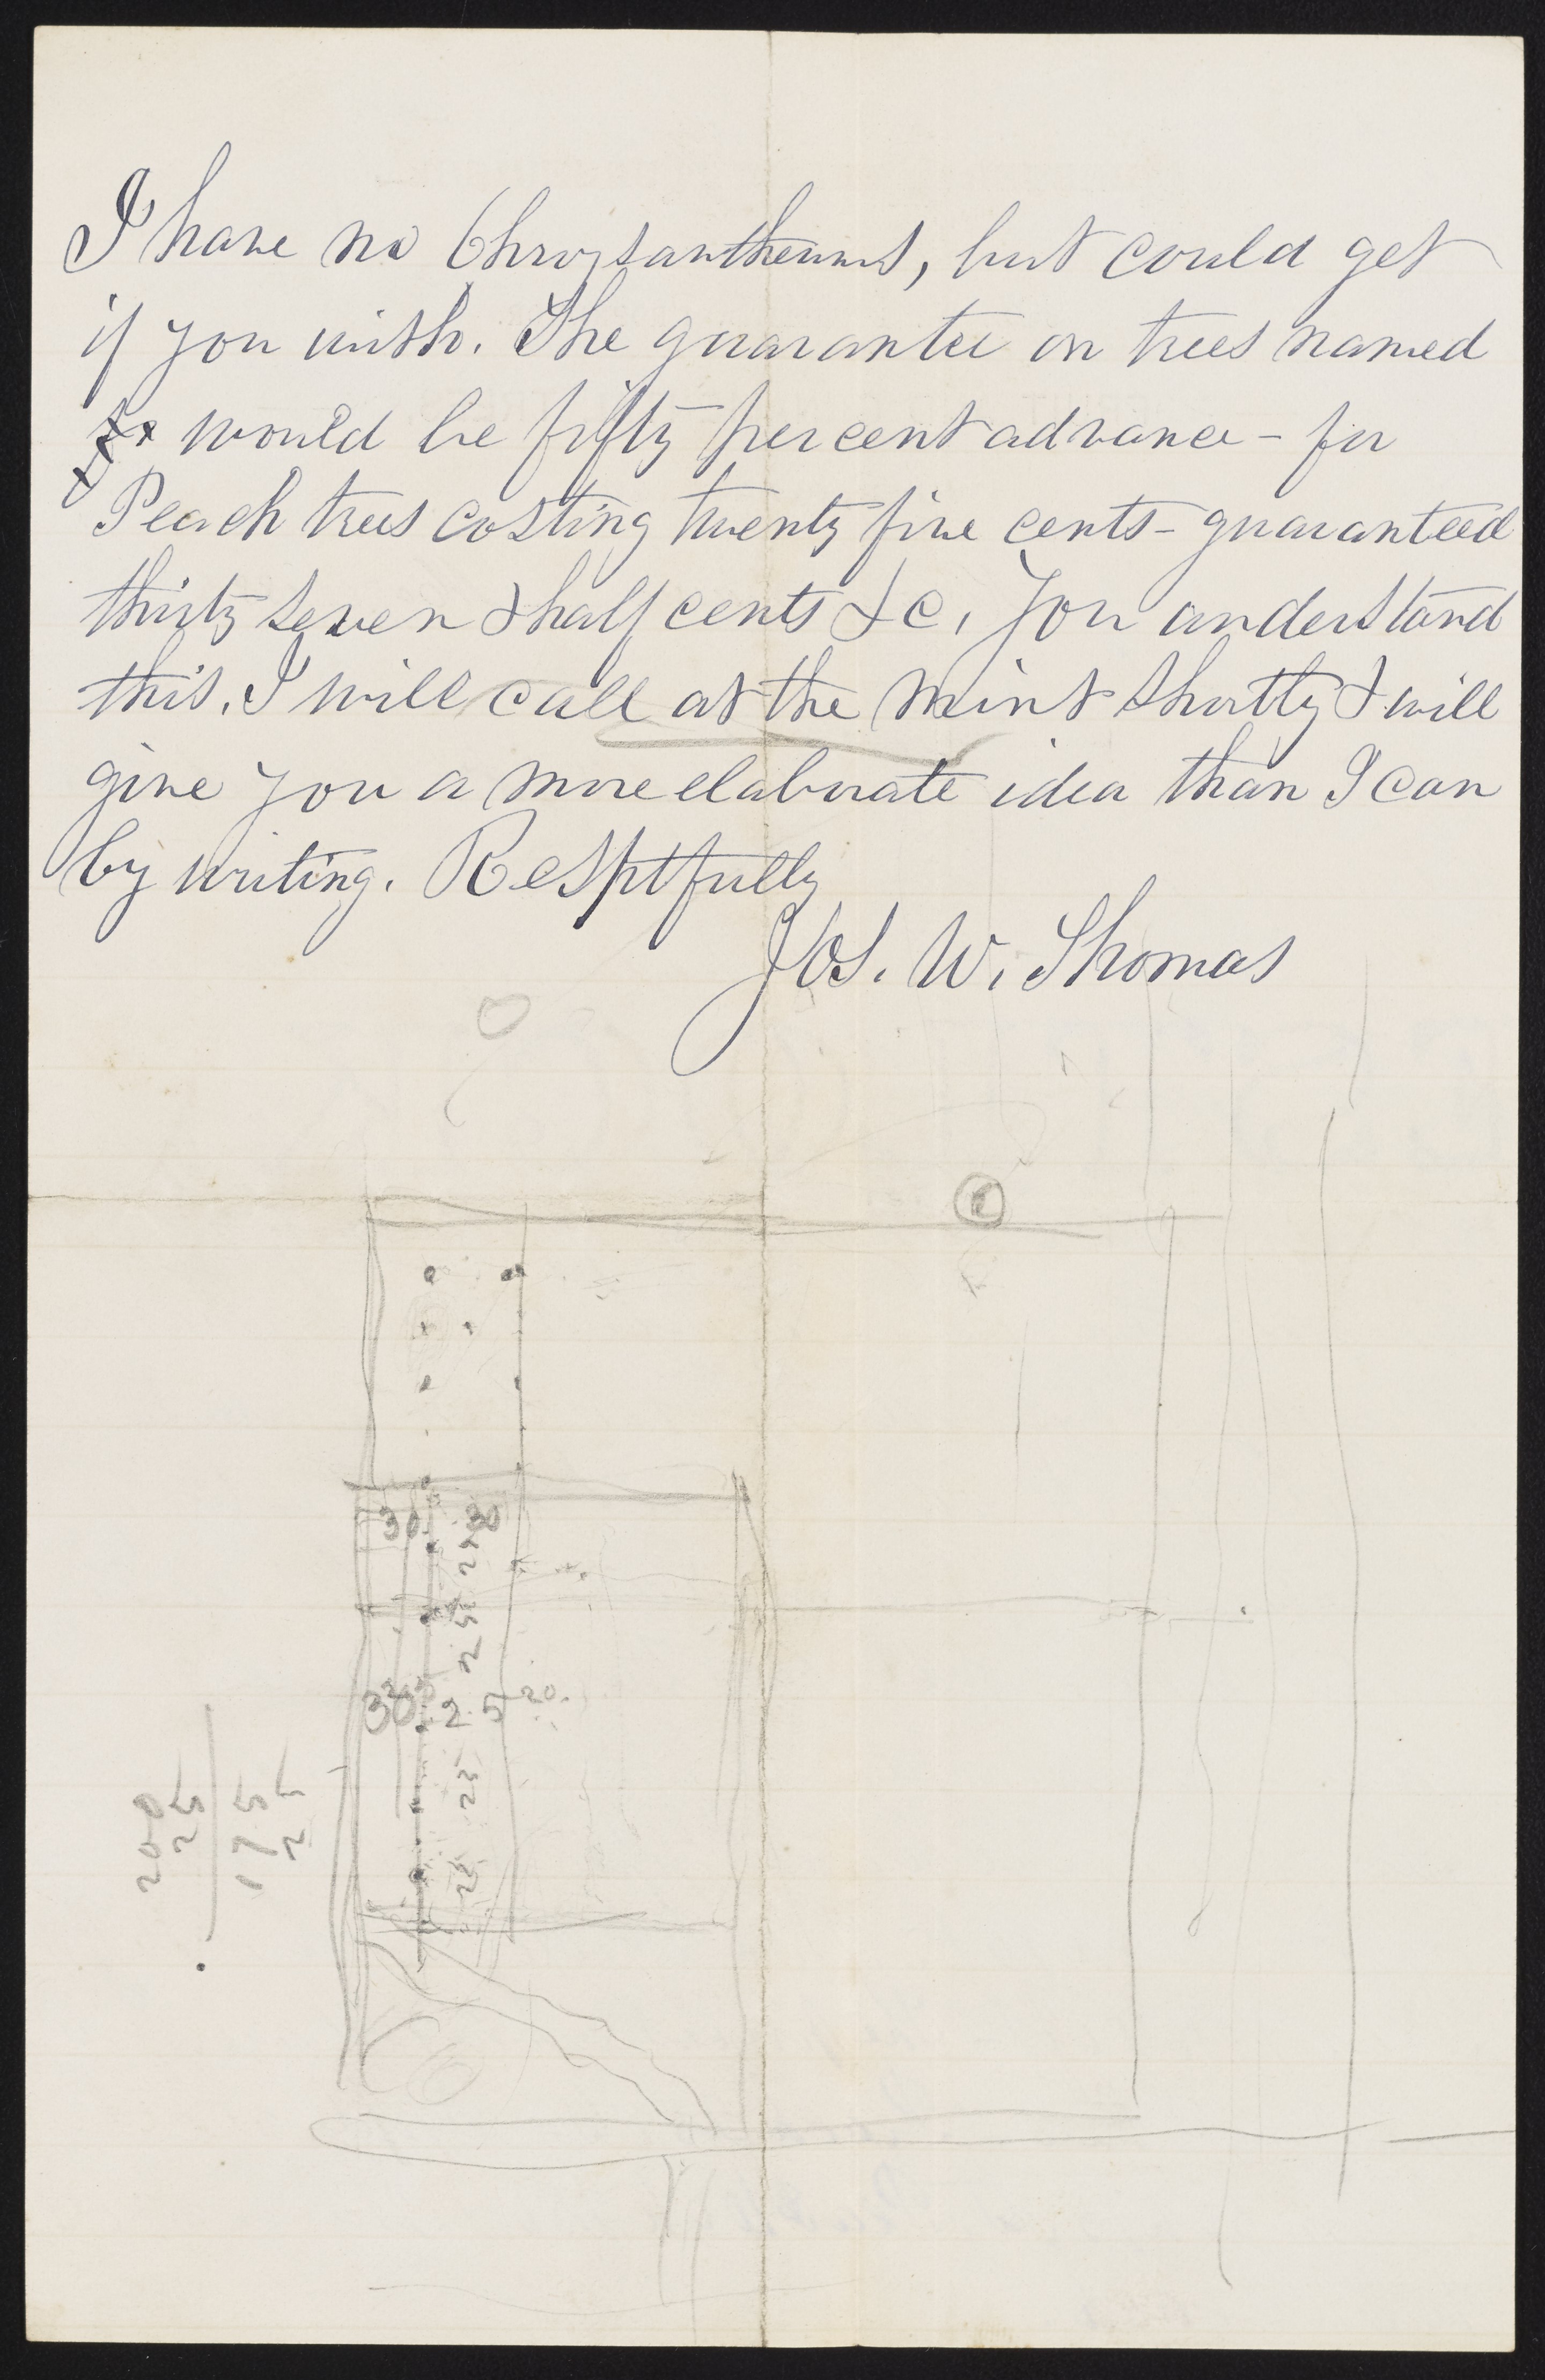 I have no Chrysanthemums, but could get
if you wish. The guarantee on trees named
would be fifty per cent advance - for
Peach trees costing twenty five cents - guaranteed
thirty seven & half cents &c, You understand
this. I will call at the Mint shortly & will
give you a more elaborate idea than I can
by writing. Resptfully
Jos. W. Thomas
30 30
25
25
30 25 20.
25
25
200
25
175
25